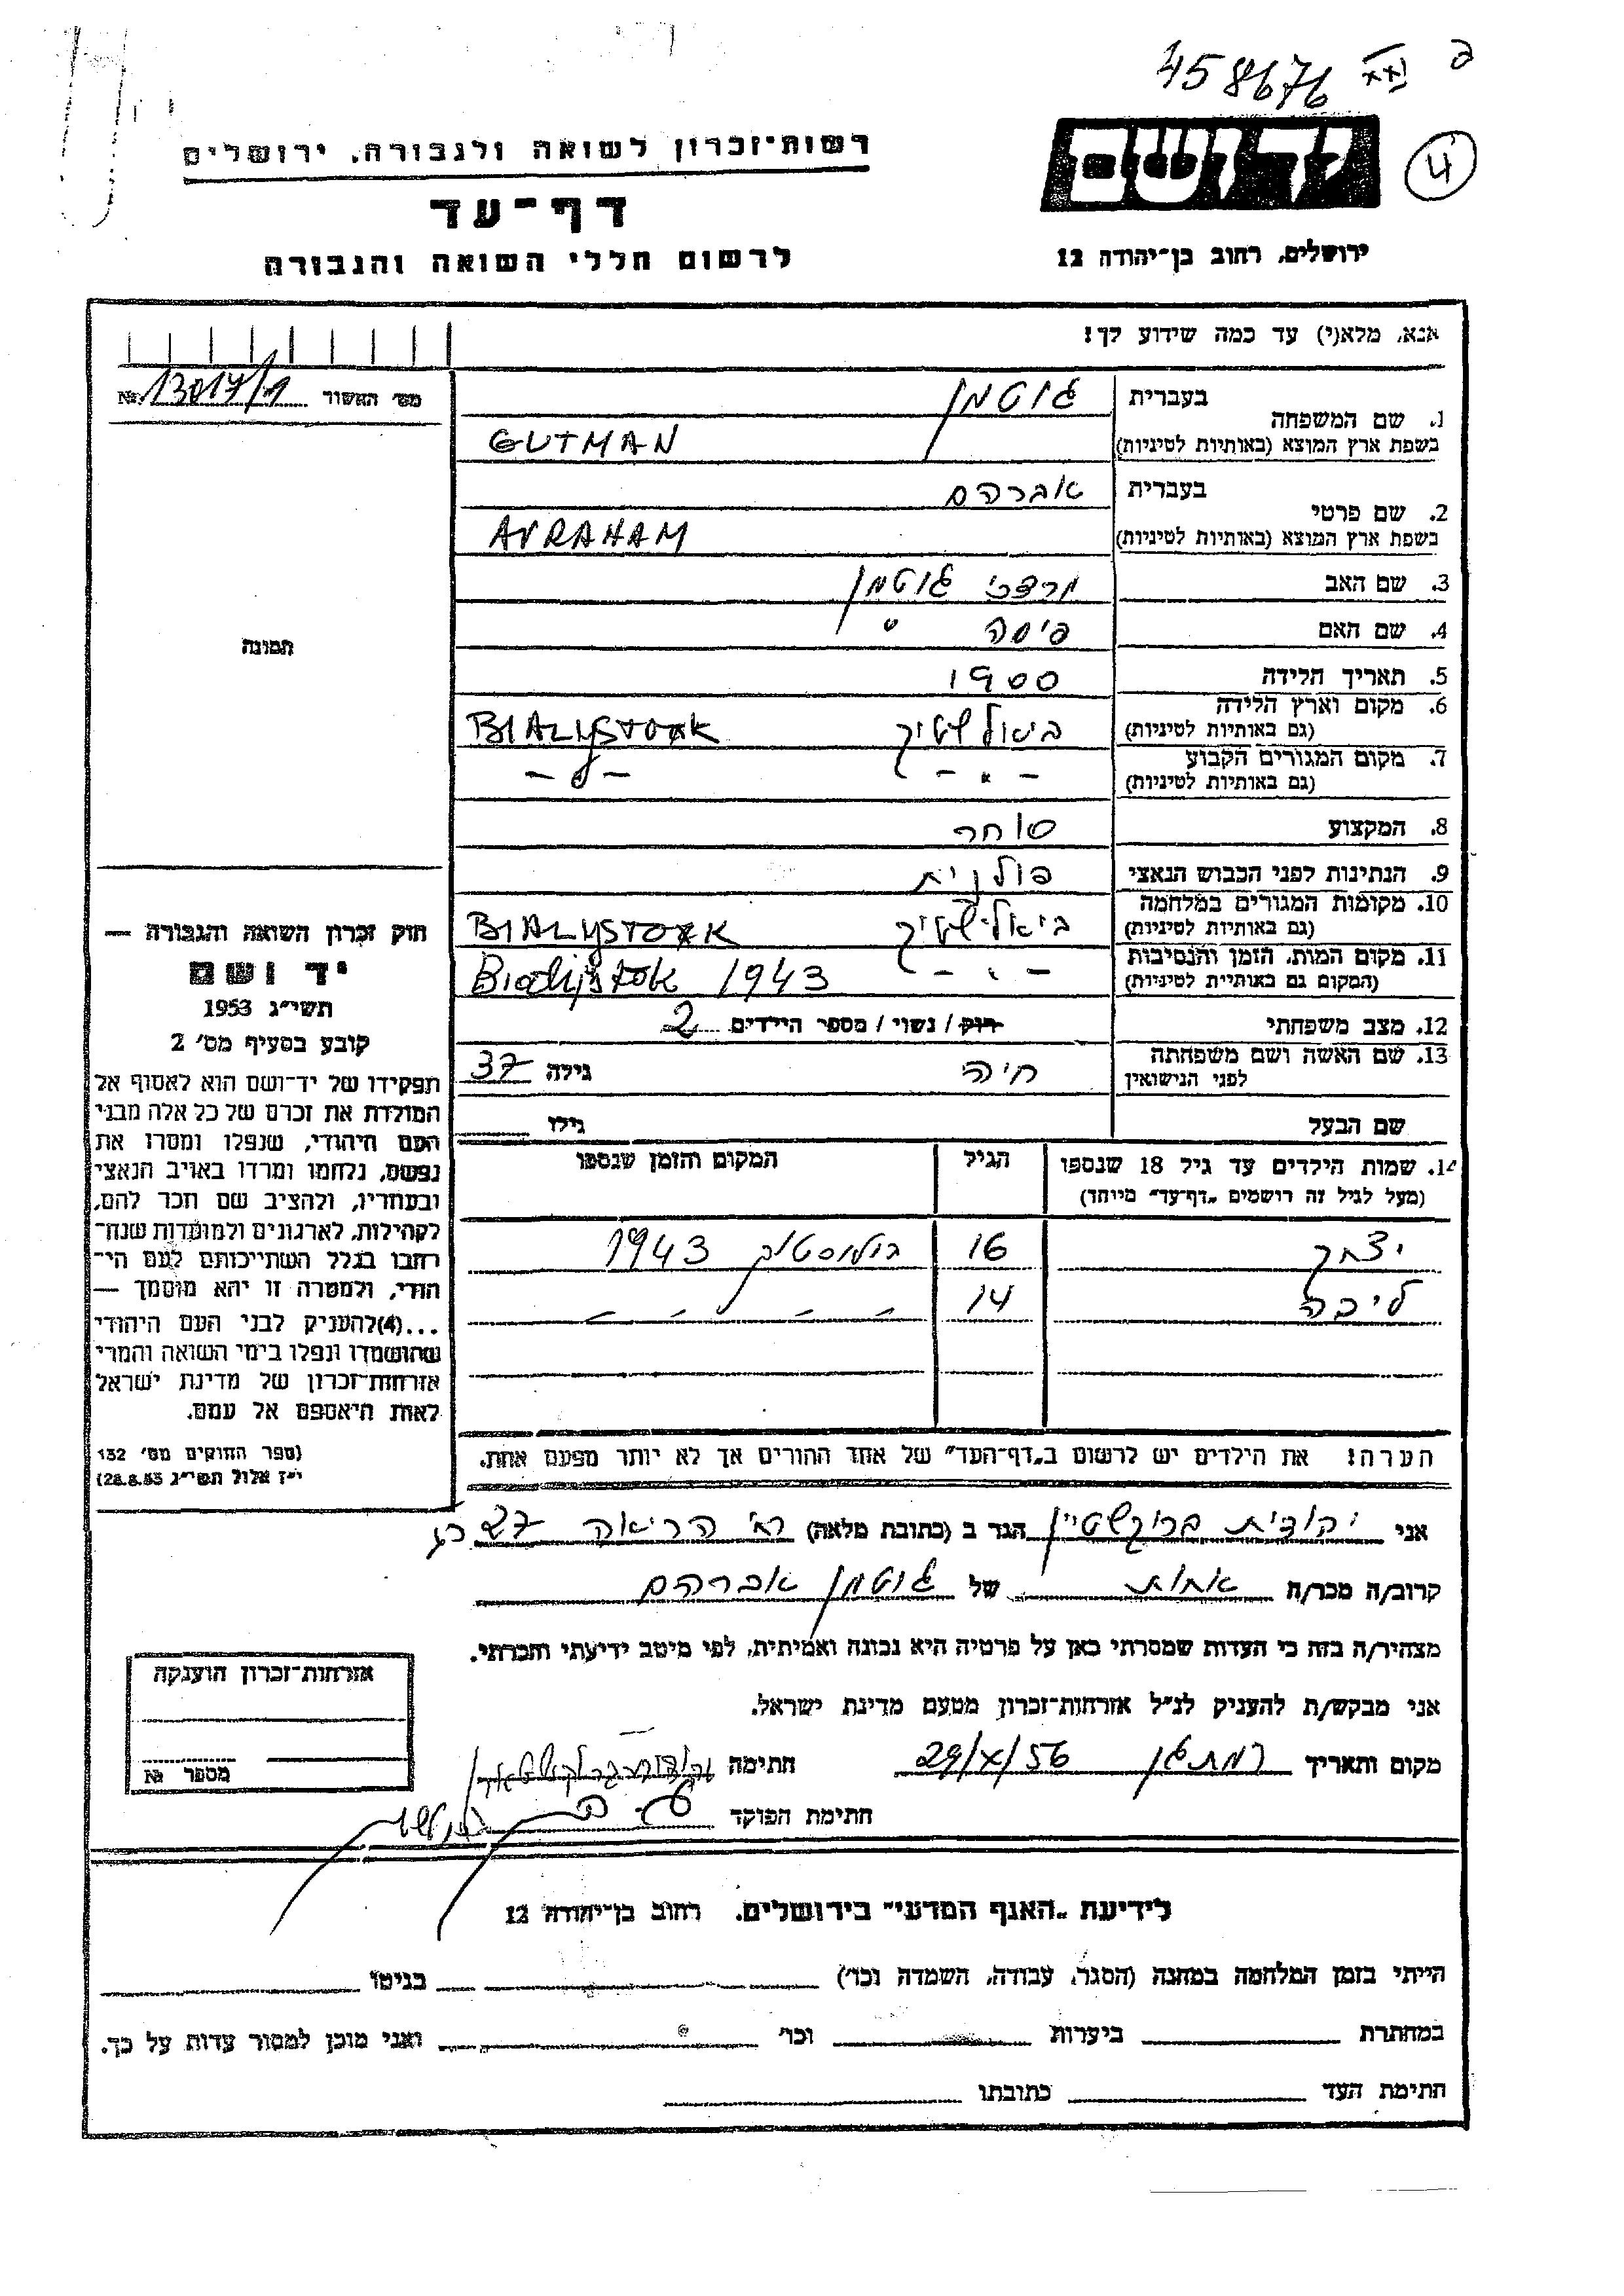 458676
4
יד ושם
ירושלים, רחוב בן־יהודה 12
רשות־זכרון לשואה ולגבורה, ירושלים
דף־עד
לרשום חללי השואה והגבורה
אנא, מלא(י) עד כמה שידוע לך!
מס׳ האשור № 13017/1
1. שם המשפחה
בעברית גוטמן
בשפת ארץ המוצא (באותיות לטיניות) GUTMAN
2. שם פרטי
בעברית אברהם
בשפת ארץ המוצא (באותיות לטיניות) AVRAHAM
3. שם האב מרדכי גוטמן
4. שם האם "
5. תאריך הלידה 1900
6. מקום וארץ הלידה
(גם באותיות לטיניות) ביאולשטוק BIALYSTOK
7. מקום המגורים הקבוע
(גם באותיות לטיניות) – " – – " –
8. המקצוע סוחר
9. הנתינות לפני הכבוש הנאצי פולנית
10. מקומות המגורים במלחמה
(גם באותיות לטיניות) ביאלישטוק BIALYSTOK
11. מקום המות, הזמן והנסיבות
(המקום גם באותיית לטיניות) – " – Bialystok 1943
12. מצב משפחתי רוק / נשוי / מספר הילדים 2
13. שם האשה ושם משפחתה
לפני הנישואין חיה גילה 37
שם הבעל גילו
14. שמות הילדים עד גיל 18 שנספו הגיל המקום והזמן שנספו
(מעל לגיל זה רושמים „דף־עד” מיוחד)
יצחק 16 1943
ליבה 14 – – – –
הערה! את הילדים יש לרשום ב„דף־העד” של אחד ההורים אך לא יותר מפעם אחת.
תמונה
חוק זכרון השואה והגבורה —
יד ושם
תשי״ג 1953
קובע בסעיף מס׳ 2
תפקידו של יד־ושם הוא לאסוף אל
המולדת את זכרם של כל אלה מבני
העם היהודי, שנפלו ומסרו את
נפשם, נלחמו ומרדו באויב הנאצי
ובעוזריו, ולהציב שם וזכר להם,
לקהילות, לארגונים ולמוסדות שנח־
רבו בגלל השתייכותם לעם הי־
הודי, ולמטרה זו יהא מוסמך —
...(4)להעניק לבני העם היהודי
שהושמדו ונפלו בימי השואה והמרי
אזרחות־זכרון של מדינת ישראל
לאות היאספם אל עמם.
(ספר החוקים מס׳ 132
י״ז אלול תשי״ג 28.8.53)
אני יהודית ברוקשטיין הגר ב (כתובת מלאה) 27
קרוב/ה מכר/ה אחות של גוטמן אברהם
מצהיר/ה בזה כי העדות שמסרתי כאן על פרטיה היא נכונה ואמיתית, לפי מיטב ידיעתי והכרתי.
אני מבקש/ת להעניק לנ״ל אזרחות־זכרון מטעם מדינת ישראל.
מקום ותאריך רמת גן 29/X/56 חתימה
חתימת הפוקד
אזרחות־זכרון הוענקה
מספר №
לידיעת „האגף המדעי” בירושלים, רחוב בן־יהודה 12
הייתי בזמן המלחמה במחנה (הסגר, עבודה, השמדה וכו׳) בגיטו
במחתרת ביערות וכו׳ ואני מוכן למסור עדות על כך.
חתימת העד כתובתו